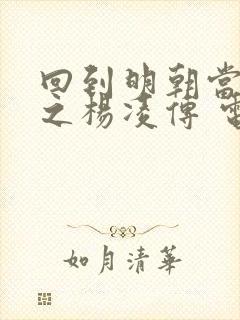 回到明朝當
之楊凌傳 電
如月清華